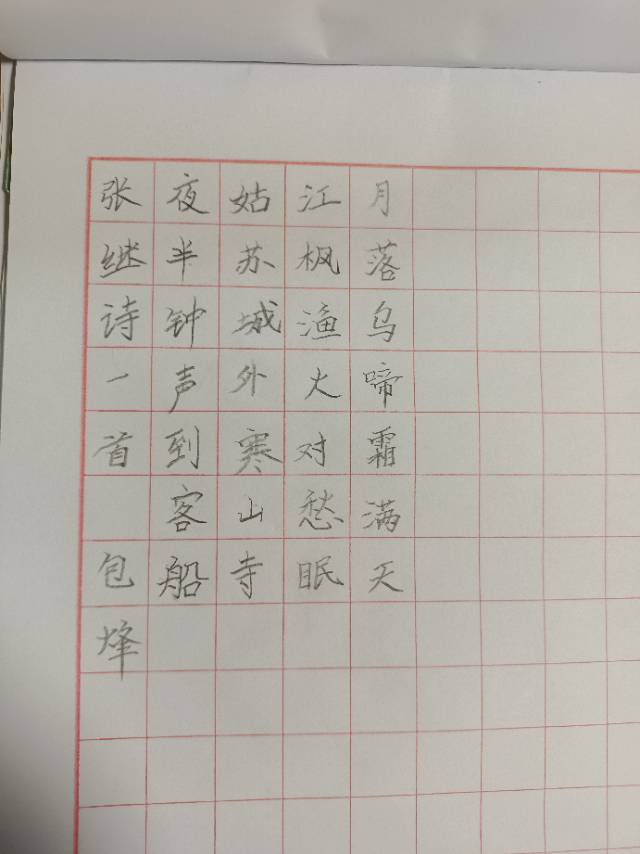 月落乌啼霜满天
江枫渔火对愁眠
姑苏城外寒山寺
夜半钟声到客船
张继诗一首 包烽